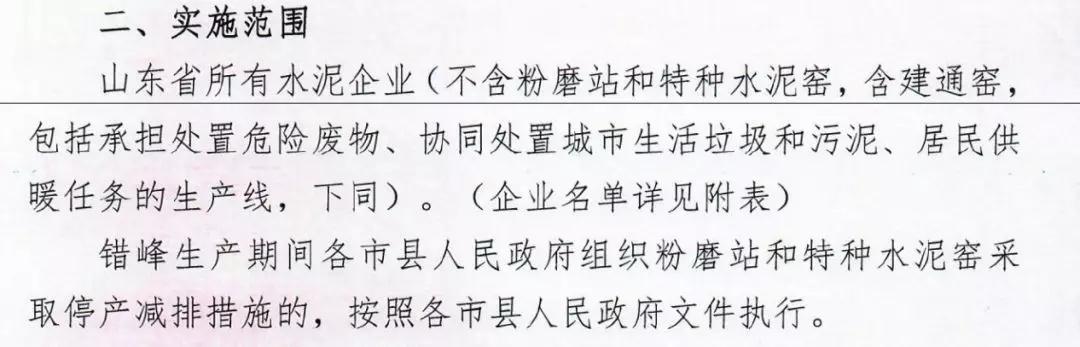 二、实施范围
山东省所有水泥企业（不含粉磨站和特种水泥窑，含建通窑，
包括承担处置危险废物、协同处置城市生活垃圾和污泥、居民供
暖任务的生产线，下同）。（企业名单详见附表）
错峰生产期间各市县人民政府组织粉磨站和特种水泥窑采
取停产减排措施的，按照各市县人民政府文件执行。